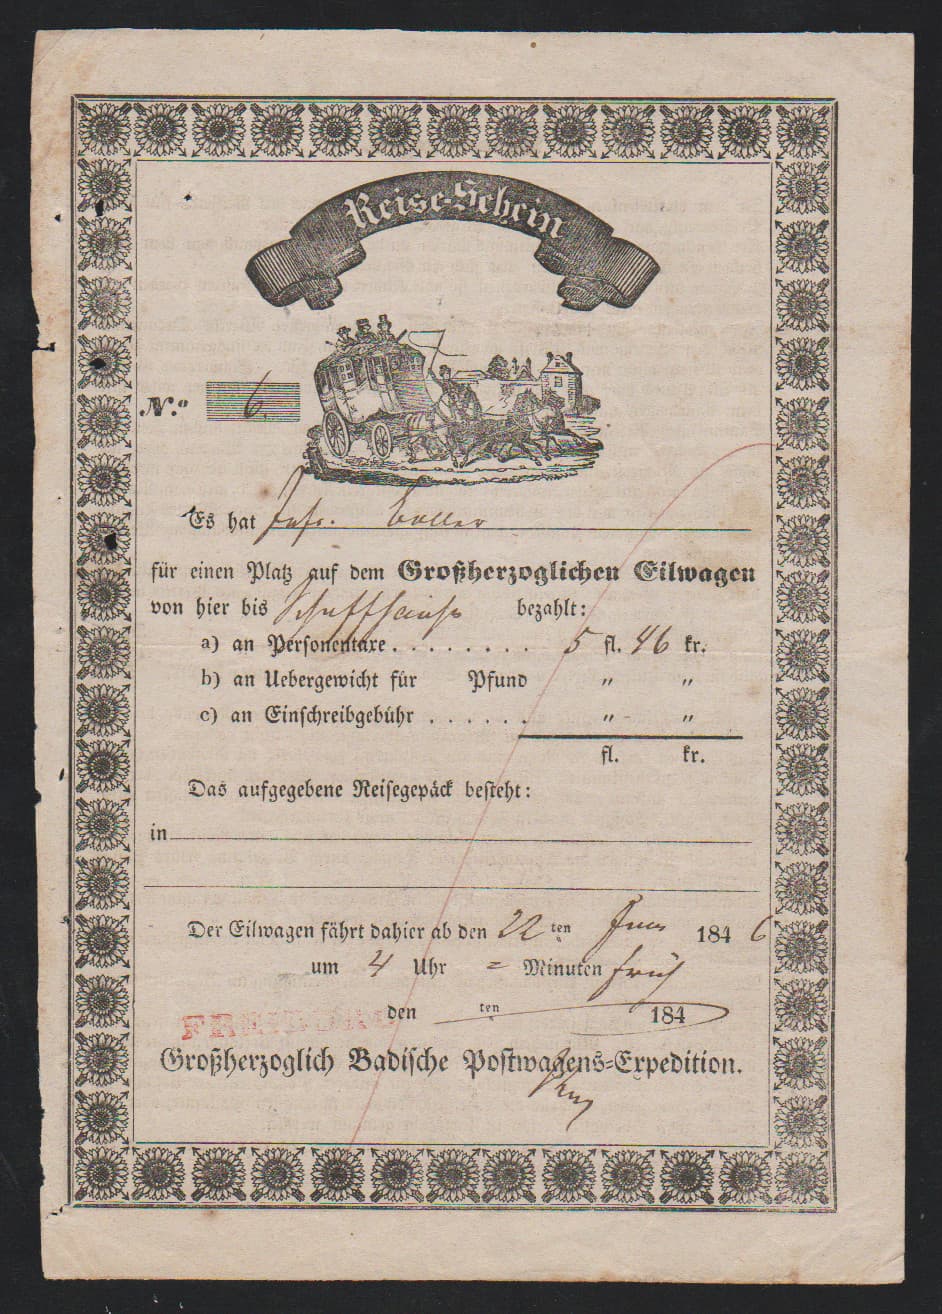 Reise-Schein
N.º 6
Es hat
für einen Platz auf dem Großherzoglichen Eilwagen
von hier bis Schaffhausen bezahlt:
a) an Personentaxe . . . . . . . . 5 fl. 46 kr.
b) an Uebergewicht für Pfund " "
c) an Einschreibgebühr . . . . . . " "
fl. kr.
Das aufgegebene Reisegepäck besteht:
in
Der Eilwagen fährt dahier ab den 22 ten 184 6
um 4 Uhr = Minuten früh
den ten 184
FREIBURG
Großherzoglich Badische Postwagens-Expedition.